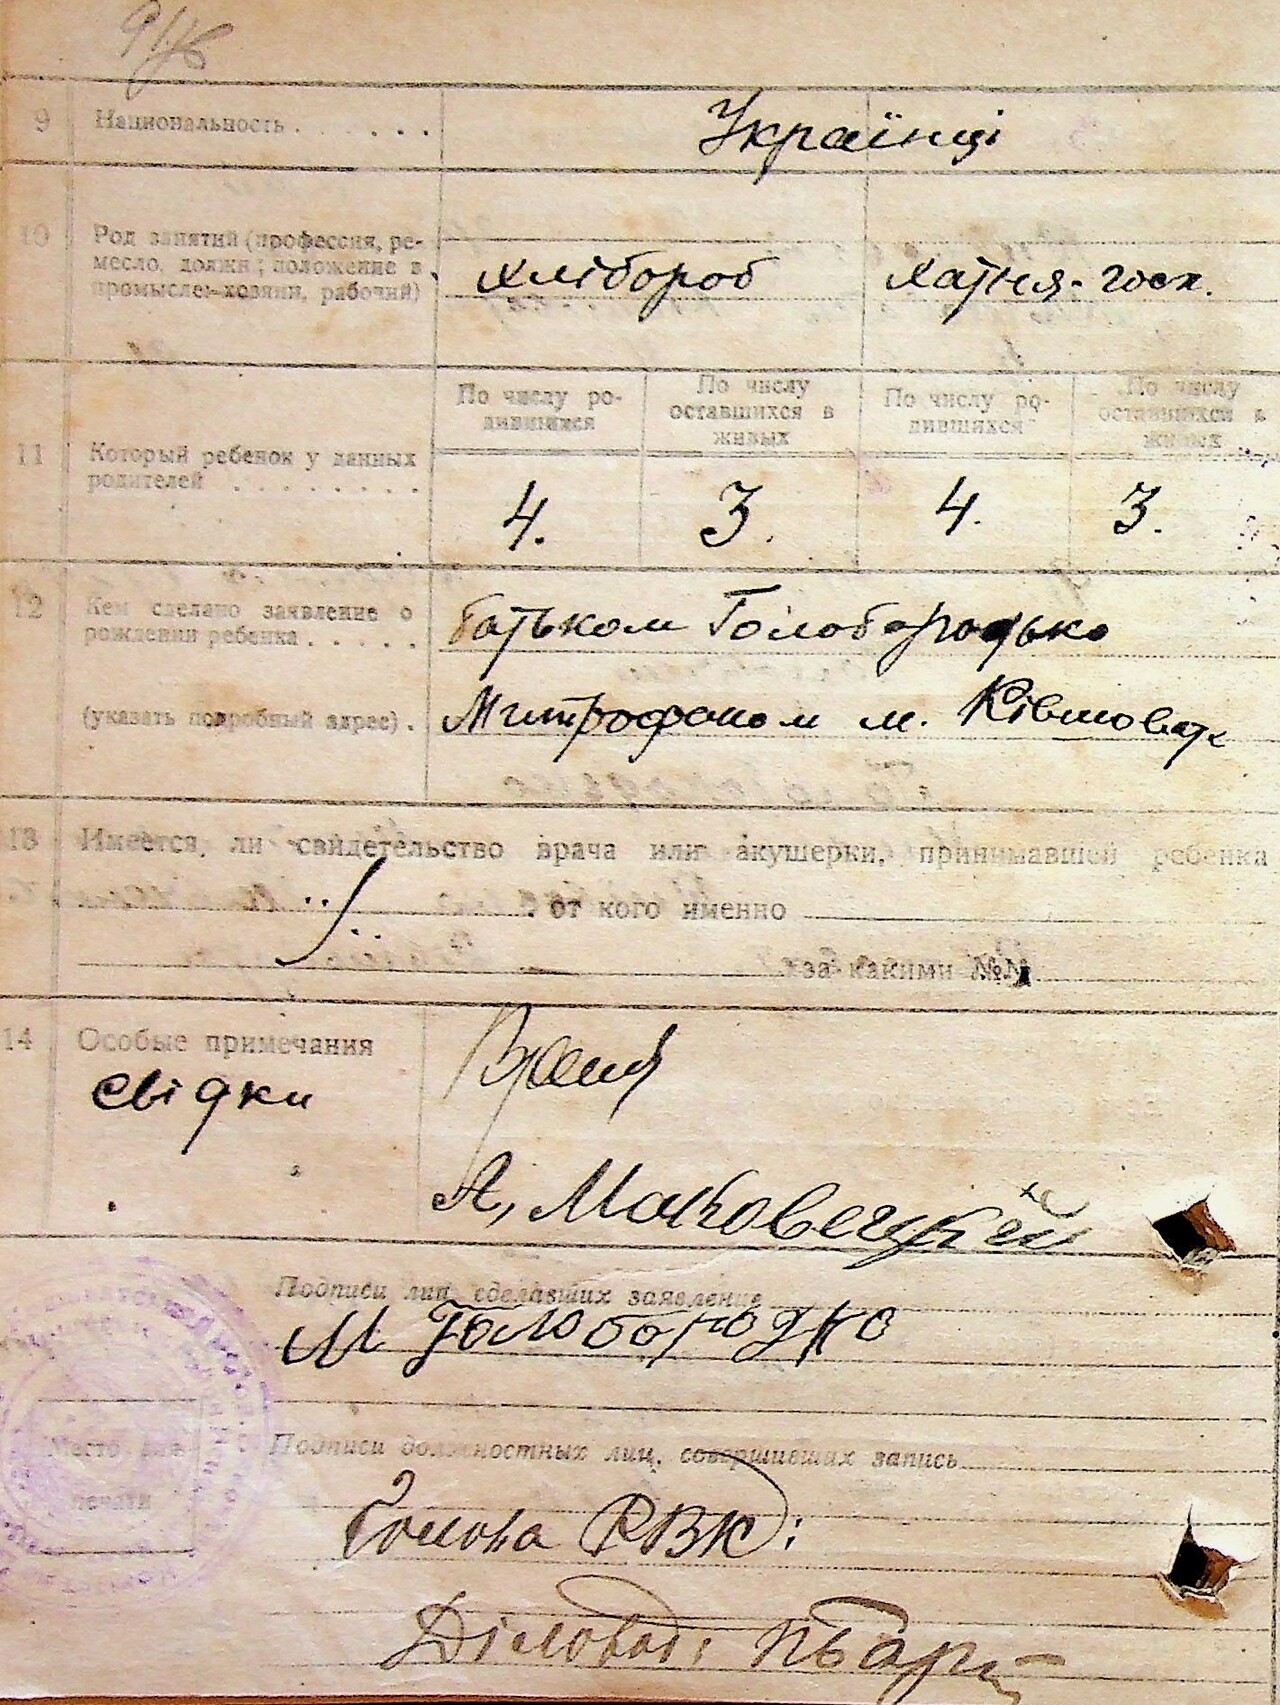 9 Национальность . . . . . . Українці
10 Род занятий (профессия, ре-
месло, должн; положение в
промысле-хозяин, рабочий)
хлібороб хатня-госп.
По числу ро-
дившихся
По числу
оставшихся в
живых
По числу ро-
дившихся
По числу
оставшихся в
живых
11 Который ребенок у данных
родителей . . . . . . . .
4. 3. 4. 3.
12 Кем сделано заявление о
рождении ребенка . . . . .
батьком Голобородько
(указать подробный адрес) . Митрофаном м. Ківшовата
13 Имеется ли свидетельство врача или акушерки, принимавшей ребенка
от кого именно
за какими №№
14 Особые примечания
свідки
А, Маковецкий
Подписи лиц, сделавших заявление
М Голобородко
Место для
печати
Подписи должностных лиц, совершивших запись
Голова РВК:
Діловод: